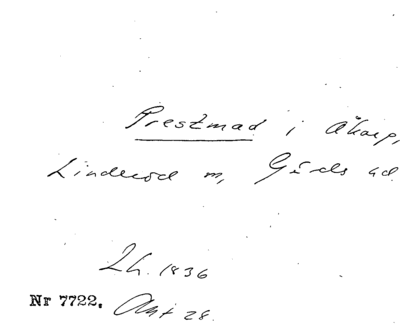 Prestmad i Åkarp,
Linderöd sn, Gärds hd.
Lh. 1836
Nr 7722. Akt 28.